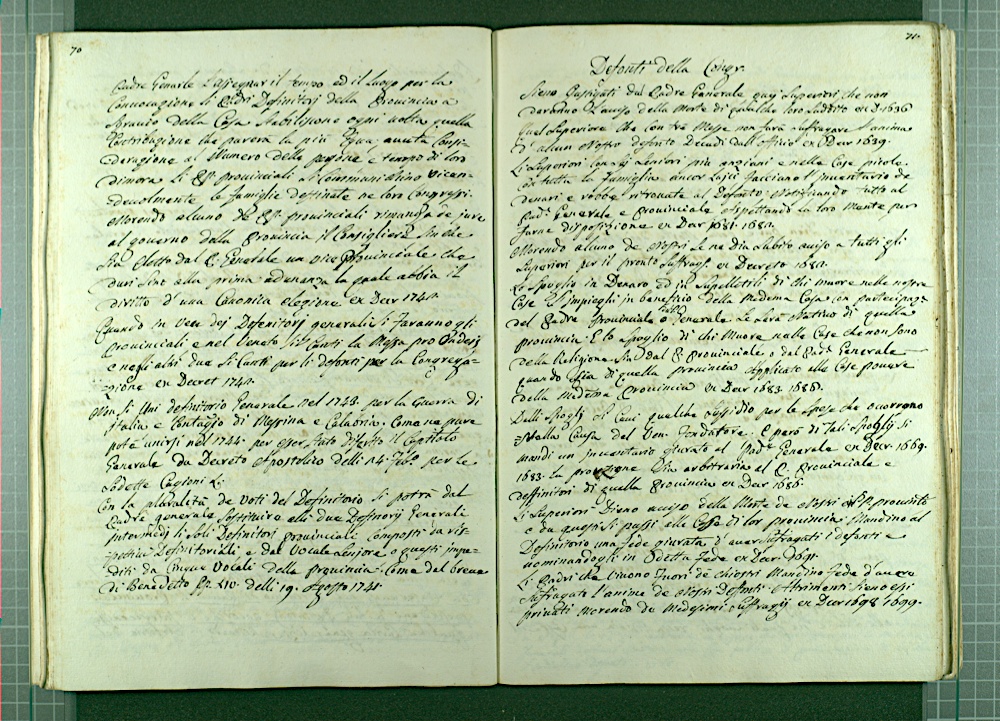 70
Padre Genãrle l'assegnar il tempo ed il luogo per la
Convocazione di Padri Definitorj della Provincia a
della Casa stabilisone ogni volta quella
Contribuzione che parerà la più Equa avuta Consi-
derazione al Numero delle persone e tempo di loro
dimora Li PP. provinciali si communichino vicen-
devolmente le famiglie destinate ne loro Congressi
Morendo alcuno de PP. provinciali rimanga de jure
al governo della Provincia il Consigliere sin che
sia eletto dal P. Generale un vice Provinciale che
duri sino alla prima adunanza la quale abbia il
diritto d'una Canonica elezione ex Decr 174
Quando in vece dei Definitorj generali si faranno gli
Provinciali e nel Veneto si Canti la Messa pro
e negli altri due si Canti per li defonti per la Congrega-
zione ex Decret 174
Non si unì definitorio Generale nel 1743. per la Guerra di
Italia e Contaggio di Messina e Calabria. Come ne pure
potè unirsi nel 1744. per esser stato il Capitolo
Generale da Decreto Apostolico delli 14. per le
sudette Cagioni
Con la pluralità de Voti del Definitorio si potrà dal
Padre generale sostituire alli due Defnorj Generali
intermedj li soli Definitori provinciali composti da ris-
pettivi Definitoriali e dal Vocale Majore o questi impe-
diti da Cinque Vocali della Provincia. Come dal breve
di Benedetto PP. XIV. delli 19. Agosto 174

71.
Defonti della Congr.
Sieno Castigati dal Padre Generale quei Superiori che non
daranno l'avviso della Morte di qualche loro suddito ex D. 1636
Quel Superiore Che fra tre Mese non farà suffragare l'anima
d'alcun Nostro defonto Decadi dall'officio ex Decr 1639.
Li Superiori con gli seniori più anziani e nelle Case picole
con tutta la famiglia ancor Laici facciano l'inventario de
denari e robbe ritrovate al Defonto Notificando tutto al
Padr. Generale e Provinciale Aspettando la loro Mente per
farne disposizione ex Decr 1681. 168
Morendo alcuno de Nostri se ne dia subito aviso a tutti gli
Superiori per il pronto suffrag. ex Decreto 168
Lo Spoglio in Denaro ed in Supelletili di chi muore nelle nostre
Case s'impieghi in beneficio della Medema Casa con partecipaz.
del Padre Provinciale o Generale se sarà Nativo di quella
provincia. E lo spoglio di chi Muore nelle Case che non sono
della Religione sia dal P. Provinciale o dal Padr. Generale
quando sia di quella provincia applicato alle Case povere
della Medema Provincia ex Decr 1683. 1686.
Dalli Spoglj si Cavi qualche Sussidio per le spese che ocorrono
Nella Causa del Ven. Fondatore. E però di tali spoglj si
mandi un inventario giurato al Padr. Generale ex Decr. 1669.
1683. La porzione sia arbitraria al P. Provinciale e
deffinitori di quella Provincia ex Decr 1686.
Li Superiori Dieno aviso della Morte de Nostri alli PP. provinciali
e da questi si passi alle Case di lor provincia. Mandino al
Definitorio una fede giurata d'aver suffragati i defonti e
nominandogli in detta fede ex Decr 1691.
Li Padri che vivono Fuori de chiostri Mandino fede d'avere
suffragato l'anime de Nostri Deffonti. Altrimenti sieno essi
privati Morendo de Medesimi suffragij ex Decr 1698. 1699.